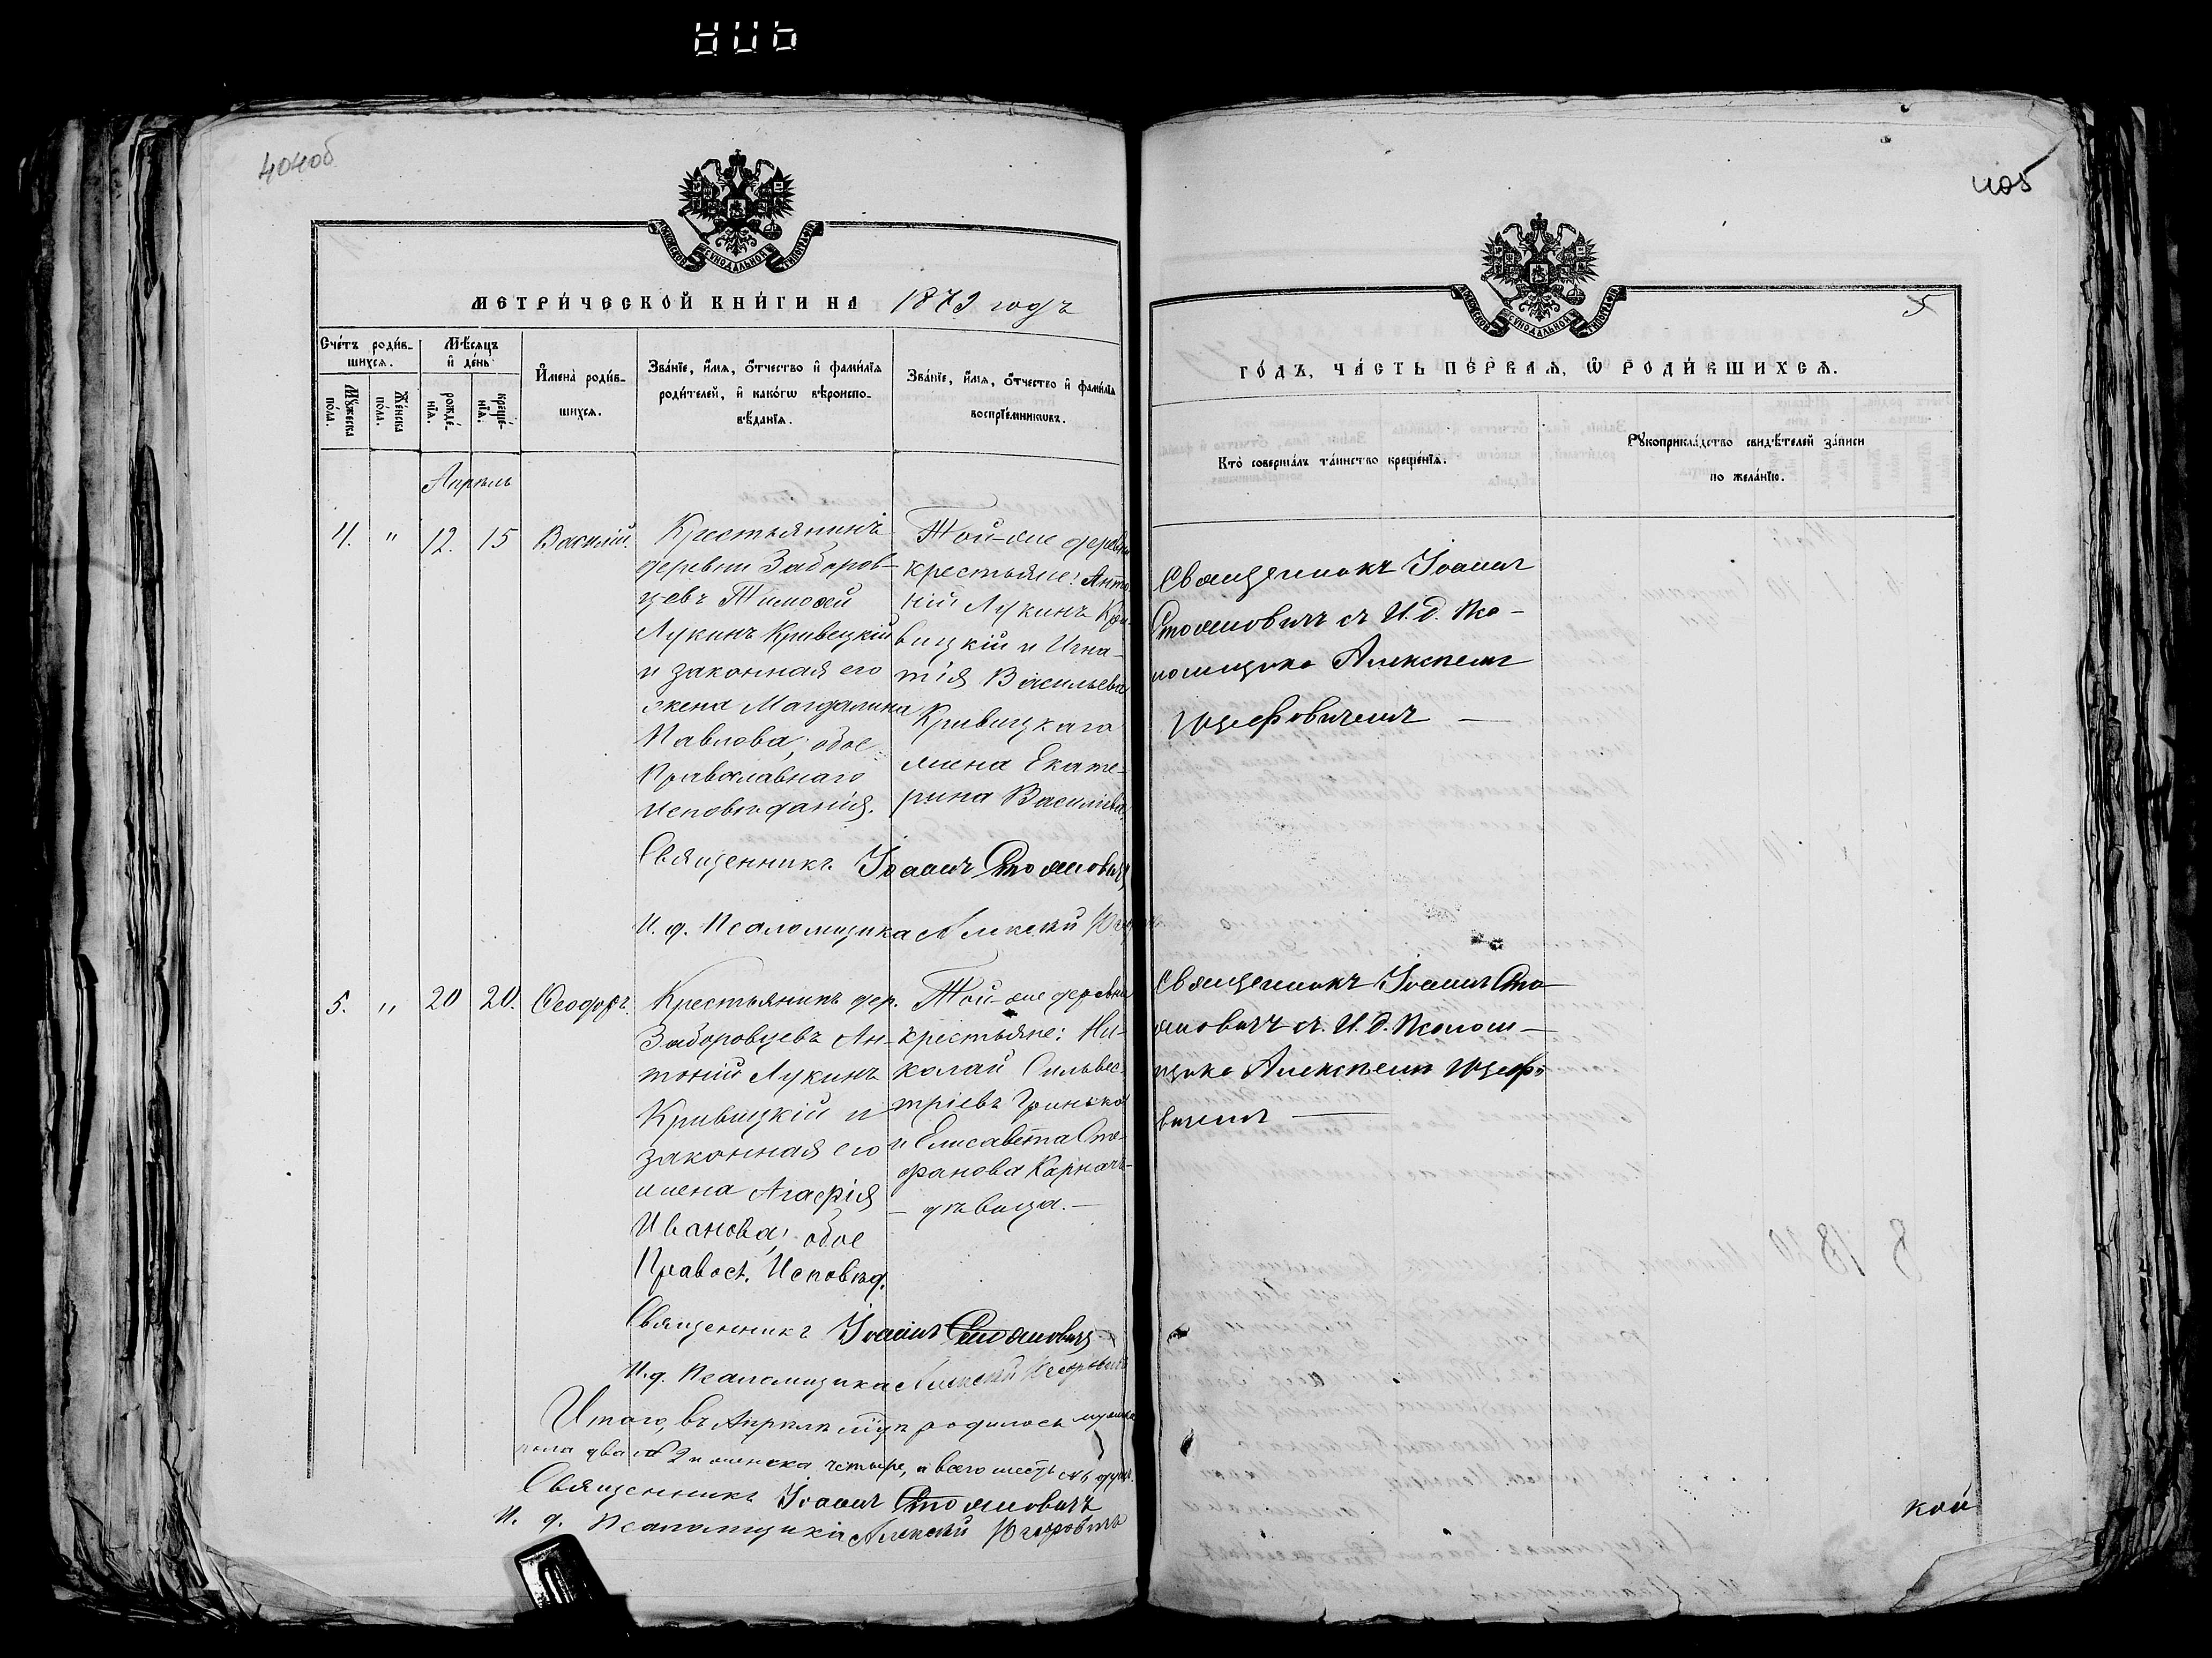 404об
405
МЕТРИЧЕСКОЙ КНИГИ НА 1873 годъ
Счетъ родив-
шихся.
Мѣсяцъ
и день
Мужеска
пола.
Женска
пола.
рожде-
нїя.
креще-
нїя.
Имена родив-
шихся.
Званїе, имя, отчество и фамилїя
родителей, и какогѡ вѣроиспо-
вѣданїя.
Званїе, имя, отчество и фамилїя
воспрїемниковъ.
Апрѣль
4. " 12. 15 Василій.
Крестьянинъ
деревни Заборов-
цевъ Тимофей
Лукинъ Кривецкій
и законная его
жена Магдалина
Павлова, обое
Православнаго
Исповѣданія.
Той-же деревни
крестьяне: Анто
ній Лукинъ Кри
вицкій и Игна-
тія Васильева
Кривицкаго
жена Екате-
рина Василіева
Священникъ Іоаннъ Стояновичъ
И. д. Псаломщика Алексѣй
5. " 20 20. Ѳеодоръ.
Крестьянинъ дер.
Заборовцевъ Ан-
тоній Лукинъ
Кривицкій и
законная его
жена Агафія
Иванова, обое
Правосл. Исповѣд.
Той же деревни
крестьяне: Ни-
колай Сильвес-
тріевъ Гринько
и Елисавета Сте-
фанова Карначъ-
- дѣвица. -
Священникъ Іоаннъ Стояновичъ
И. д. Псаломщика Алексѣй
Итого, въ Апрѣлѣ м̃цѣ родилось мужеска
пола два 2 и женска четыре, а всего шесть 6 душъ.
Священникъ Іоаннъ Стояновичъ
И. д. Псаломщика Алексѣй
5
ГОДЪ, ЧАСТЬ ПЕРВАЯ, Ѡ РОДИВШИХСЯ.
Кто совершалъ таинство крещенїя.
Рукоприкладство свидѣтелей записи
по желанїю.
Священникъ Іоаннъ
Стояновичъ съ И. д. Пса-
ломщика Алексѣемъ
Священникъ Іоаннъ Сто-
яновичъ съ И. д. Псалом-
щика Алексѣемъ
кой